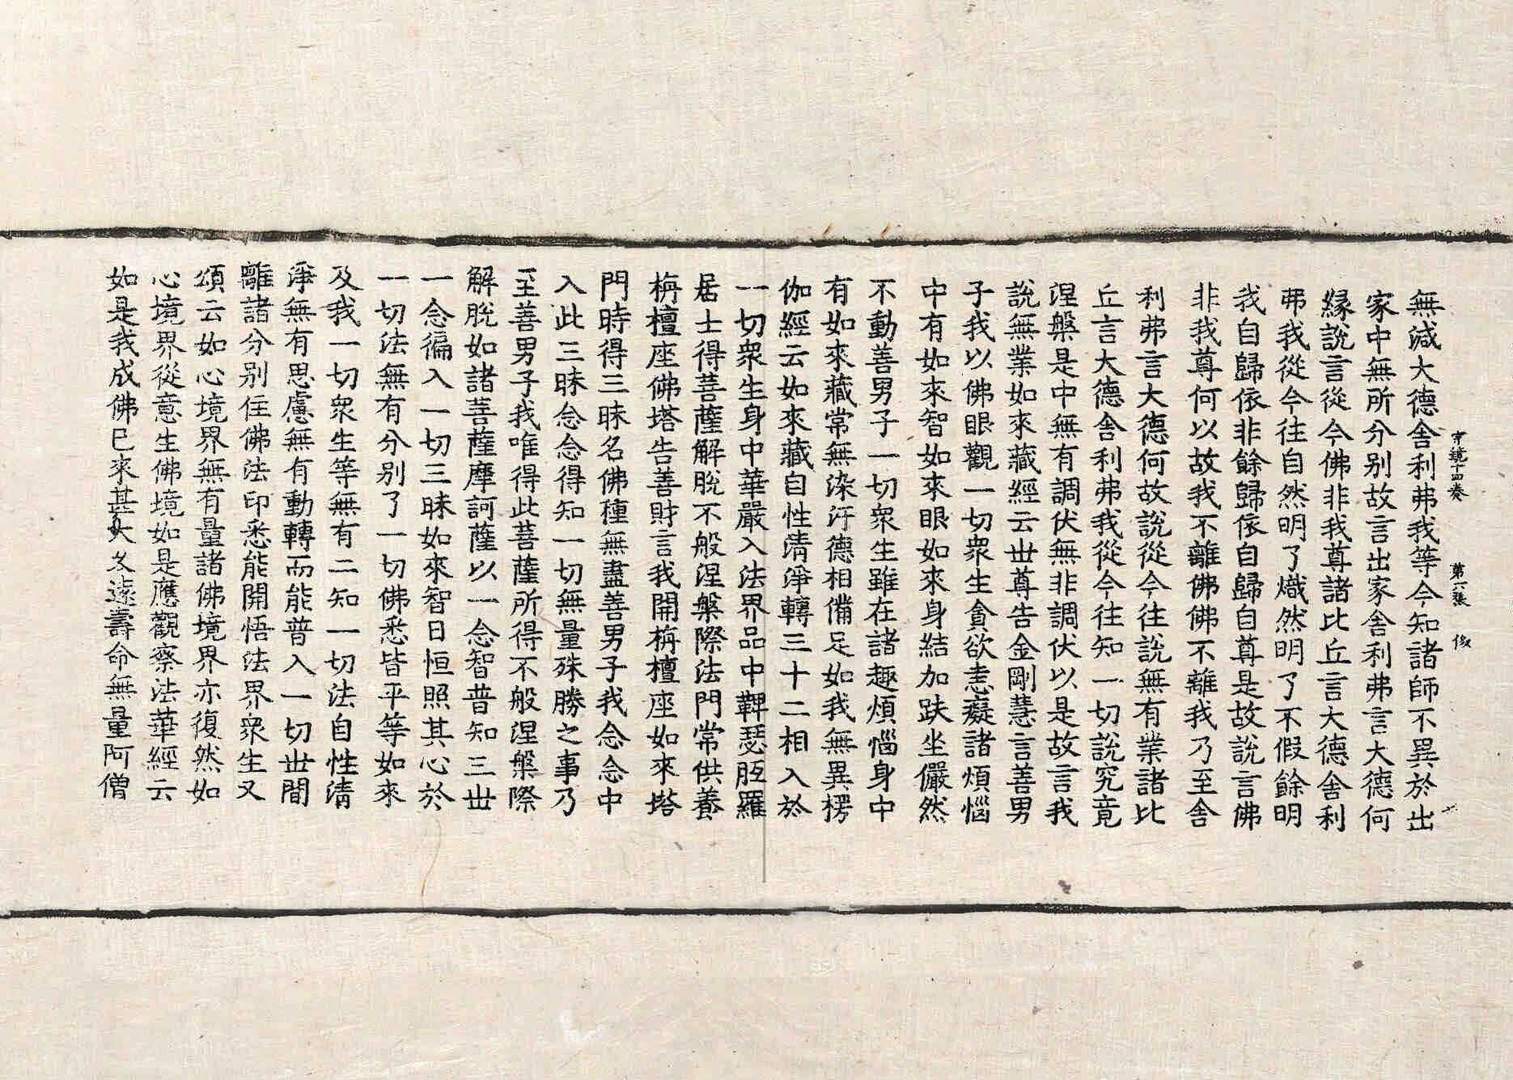 宗鏡十四卷 第二張 俊
無減大德舍利弗我等今知諸師不異於出
家中無所分別故言出家舍利弗言大德何
緣說言從今佛非我尊諸比丘言大德舍利
弗我從今往自然明了熾然明了不假餘明
我自歸依非餘歸依自歸自尊是故說言佛
非我尊何以故我不離佛佛不離我乃至舍
利弗言大德何故說從今往說無有業諸比
丘言大德舍利弗我從今往知一切說究竟
涅槃是中無有調伏無非調伏以是故言我
說無業如來藏經云世尊告金剛慧言善男
子我以佛眼觀一切眾生貪欲恚癡諸煩惱
中有如來智如來眼如來身結加趺坐儼然
不動善男子一切眾生雖在諸趣煩惱身中
有如來藏常無染汙德相備足如我無異楞
伽經云如來藏自性清淨轉三十二相入於
一切眾生身中華嚴入法界品中鞞瑟胝羅
居士得菩薩解脫不般涅槃際法門常供養
栴檀座佛塔告善財言我開栴檀座如來塔
門時得三昧名佛種無盡善男子我念念中
入此三昧念念得知一切無量殊勝之事乃
至善男子我唯得此菩薩所得不般涅槃際
解脫如諸菩薩摩訶薩以一念智普知三世
一念徧入一切三昧如來智日恒照其心於
一切法無有分別了一切佛悉皆平等如來
及我一切眾生等無有二知一切法自性清
淨無有思慮無有動轉而能普入一切世間
離諸分別住佛法印悉能開悟法界眾生又
頌云如心境界無有量諸佛境界亦復然如
心境界從意生佛境如是應觀察法華經云
如是我成佛已來甚大久遠壽命無量阿僧